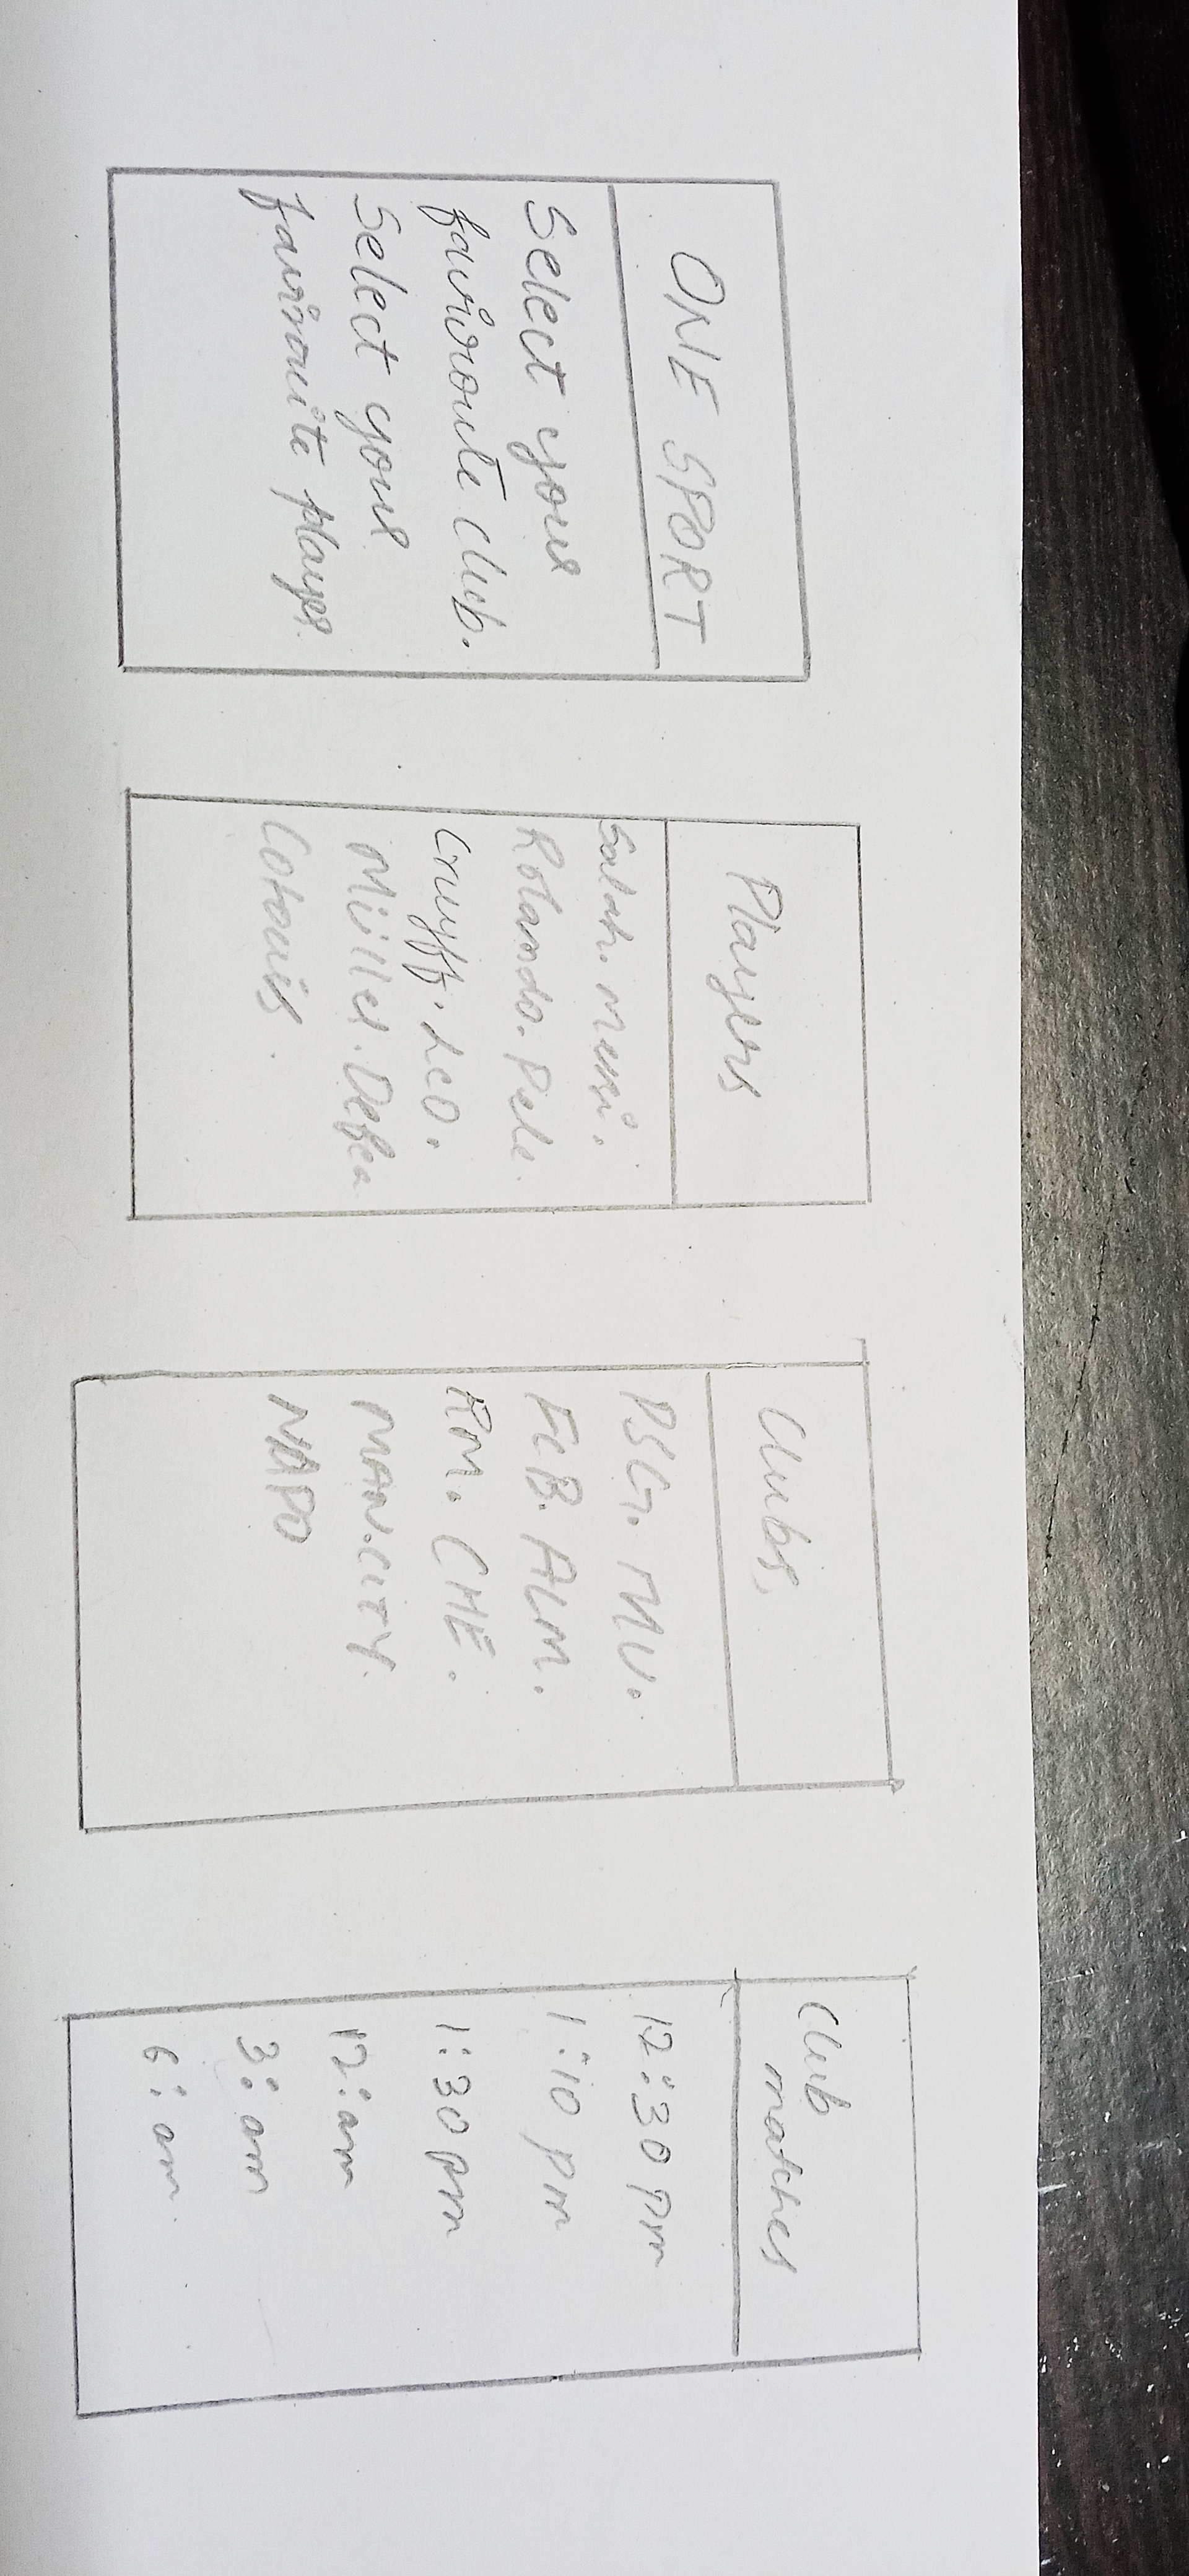 ONE SPORT
Select your
faviroute club.
Select your
favirouite player.
Players
Salah. Messi.
Rolando. Pele.
Cruyff. LEO.
Müller. Degea
Cotouis.
Clubs.
PSG. MU.
FCB. ALM.
RM. CHE.
MAN.CITY.
NAPO
Club
matches
12:30 pm
1:10 pm
1:30 pm
12:am
3:am
6:am.